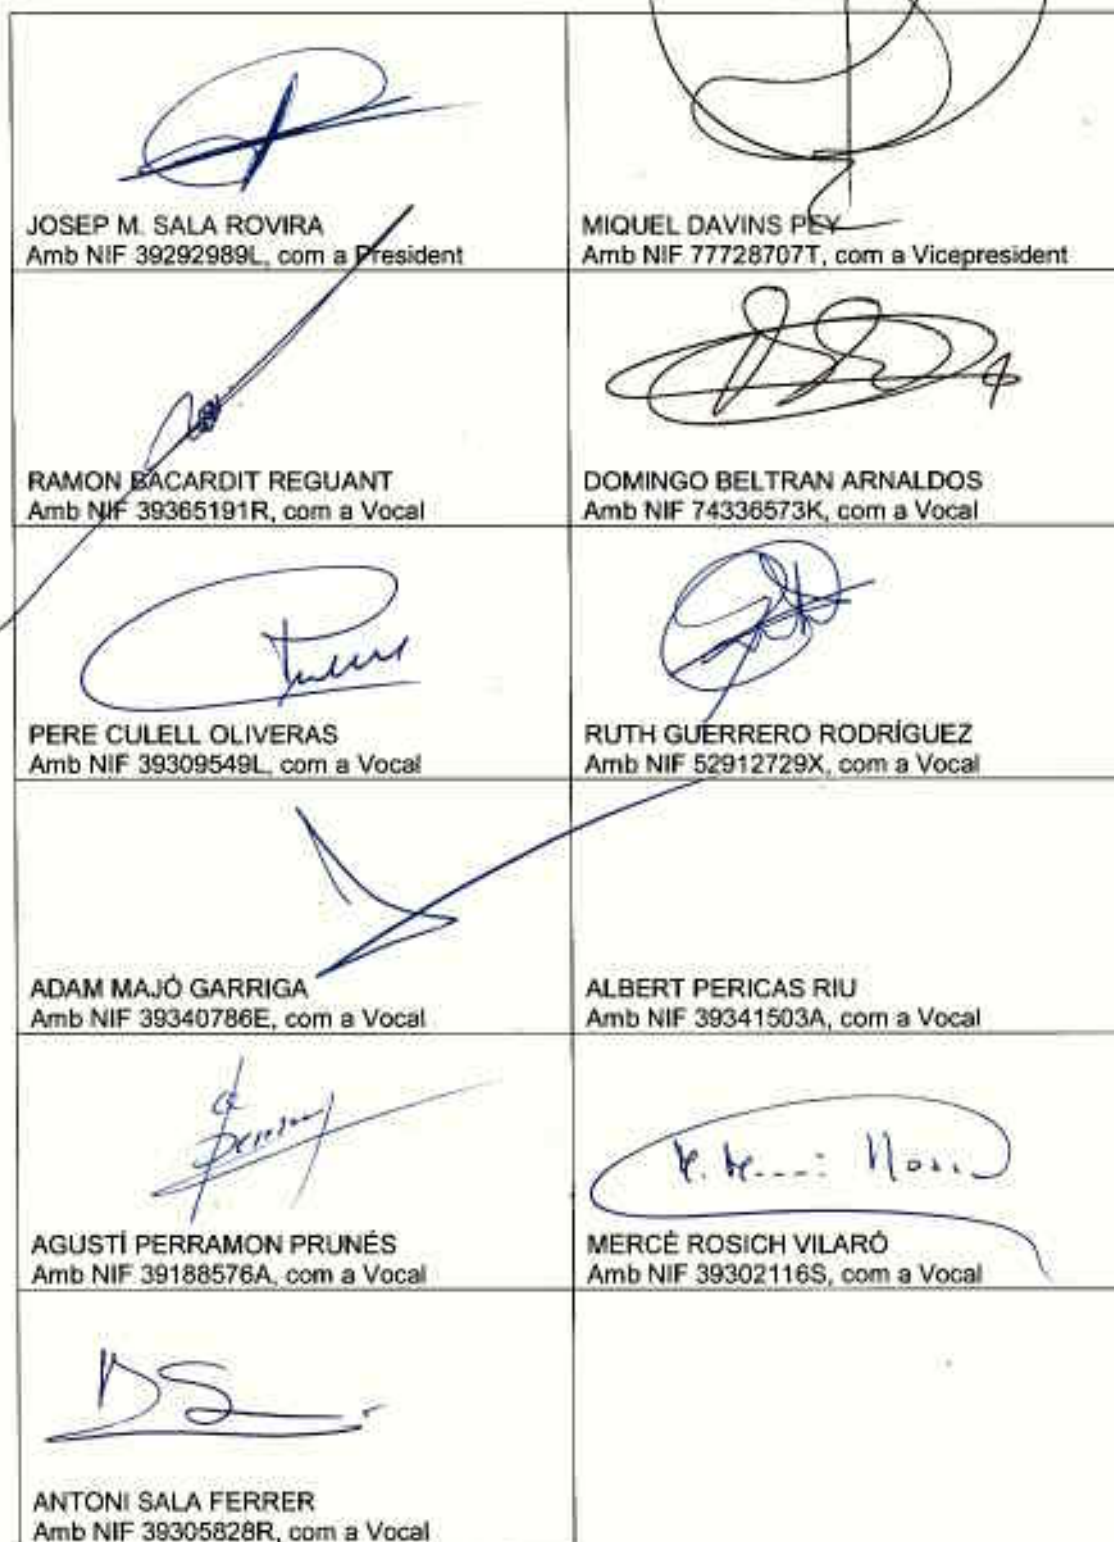 JOSEP M. SALA ROVIRA
Amb NIF 39292989L, com a President
MIQUEL DAVINS PEY
Amb NIF 77728707T, com a Vicepresident
RAMON BACARDIT REGUANT
Amb NIF 39365191R, com a Vocal
DOMINGO BELTRAN ARNALDOS
Amb NIF 74336573K, com a Vocal
PERE CULELL OLIVERAS
Amb NIF 39309549L, com a Vocal
RUTH GUERRERO RODRÍGUEZ
Amb NIF 52912729X, com a Vocal
ADAM MAJÓ GARRIGA
Amb NIF 39340786E, com a Vocal
ALBERT PERICAS RIU
Amb NIF 39341503A, com a Vocal
AGUSTÍ PERRAMON PRUNÉS
Amb NIF 39188576A, com a Vocal
MERCÈ ROSICH VILARÓ
Amb NIF 39302116S, com a Vocal
ANTONI SALA FERRER
Amb NIF 39305828R, com a Vocal